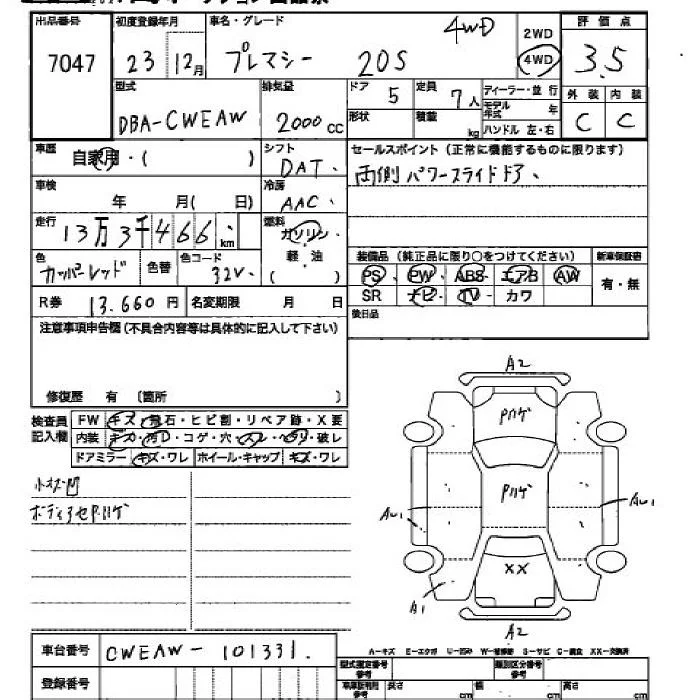 出品番号
7047
初度登録年月
23 12月
車名・グレード
プレマシー 20S 4WD
2WD
4WD
評価点
3.5
型式
DBA-CWEAW
排気量
2000cc
ドア
5
定員
7人
形状
積載
kg
ディーラー・並行
モデル年式
年
ハンドル 左・右
外装
内装
C
C
車歴
自家用・( )
シフト
DAT
セールスポイント(正常に機能するものに限ります)
両側パワースライドドア、
車検
年 月( 日)
冷房
AAC
走行
13万3千466km
燃料
ガソリン・
軽・油
( )
色
カッパーレッド
色替
色コード
32V
装備品(純正品に限り○をつけてください)
新車保証書
PS・PW・ABS・エアB・AW
SR・ナビ・TV・カワ
有・無
R券
13.660円
名変期限 月 日
後日品
注意事項申告欄(不具合内容等は具体的に記入して下さい)
修復歴 有 〔箇所 〕
検査員記入欄
FW キズ・飛石・ヒビ割・リペア跡・X要
内装 キズ・汚D・コゲ・穴・スレ・ヘタリ・破レ
ドアミラー キズ・ワレ ホイール・キャップ キズ・ワレ
小キズ凹
ボディ色アセPハゲ
A2
Pハゲ
Pハゲ
AU1
AU1
XX
A1
A2
車台番号
CWEAW-101331
登録番号
A-キズ E-エクボ U-凹み W-補修跡 S-サビ C-腐食 XX-交換済
型式指定番号
参考
類別区分番号
参考
車庫証明用
参考
長さ
cm
幅
cm
高さ
cm